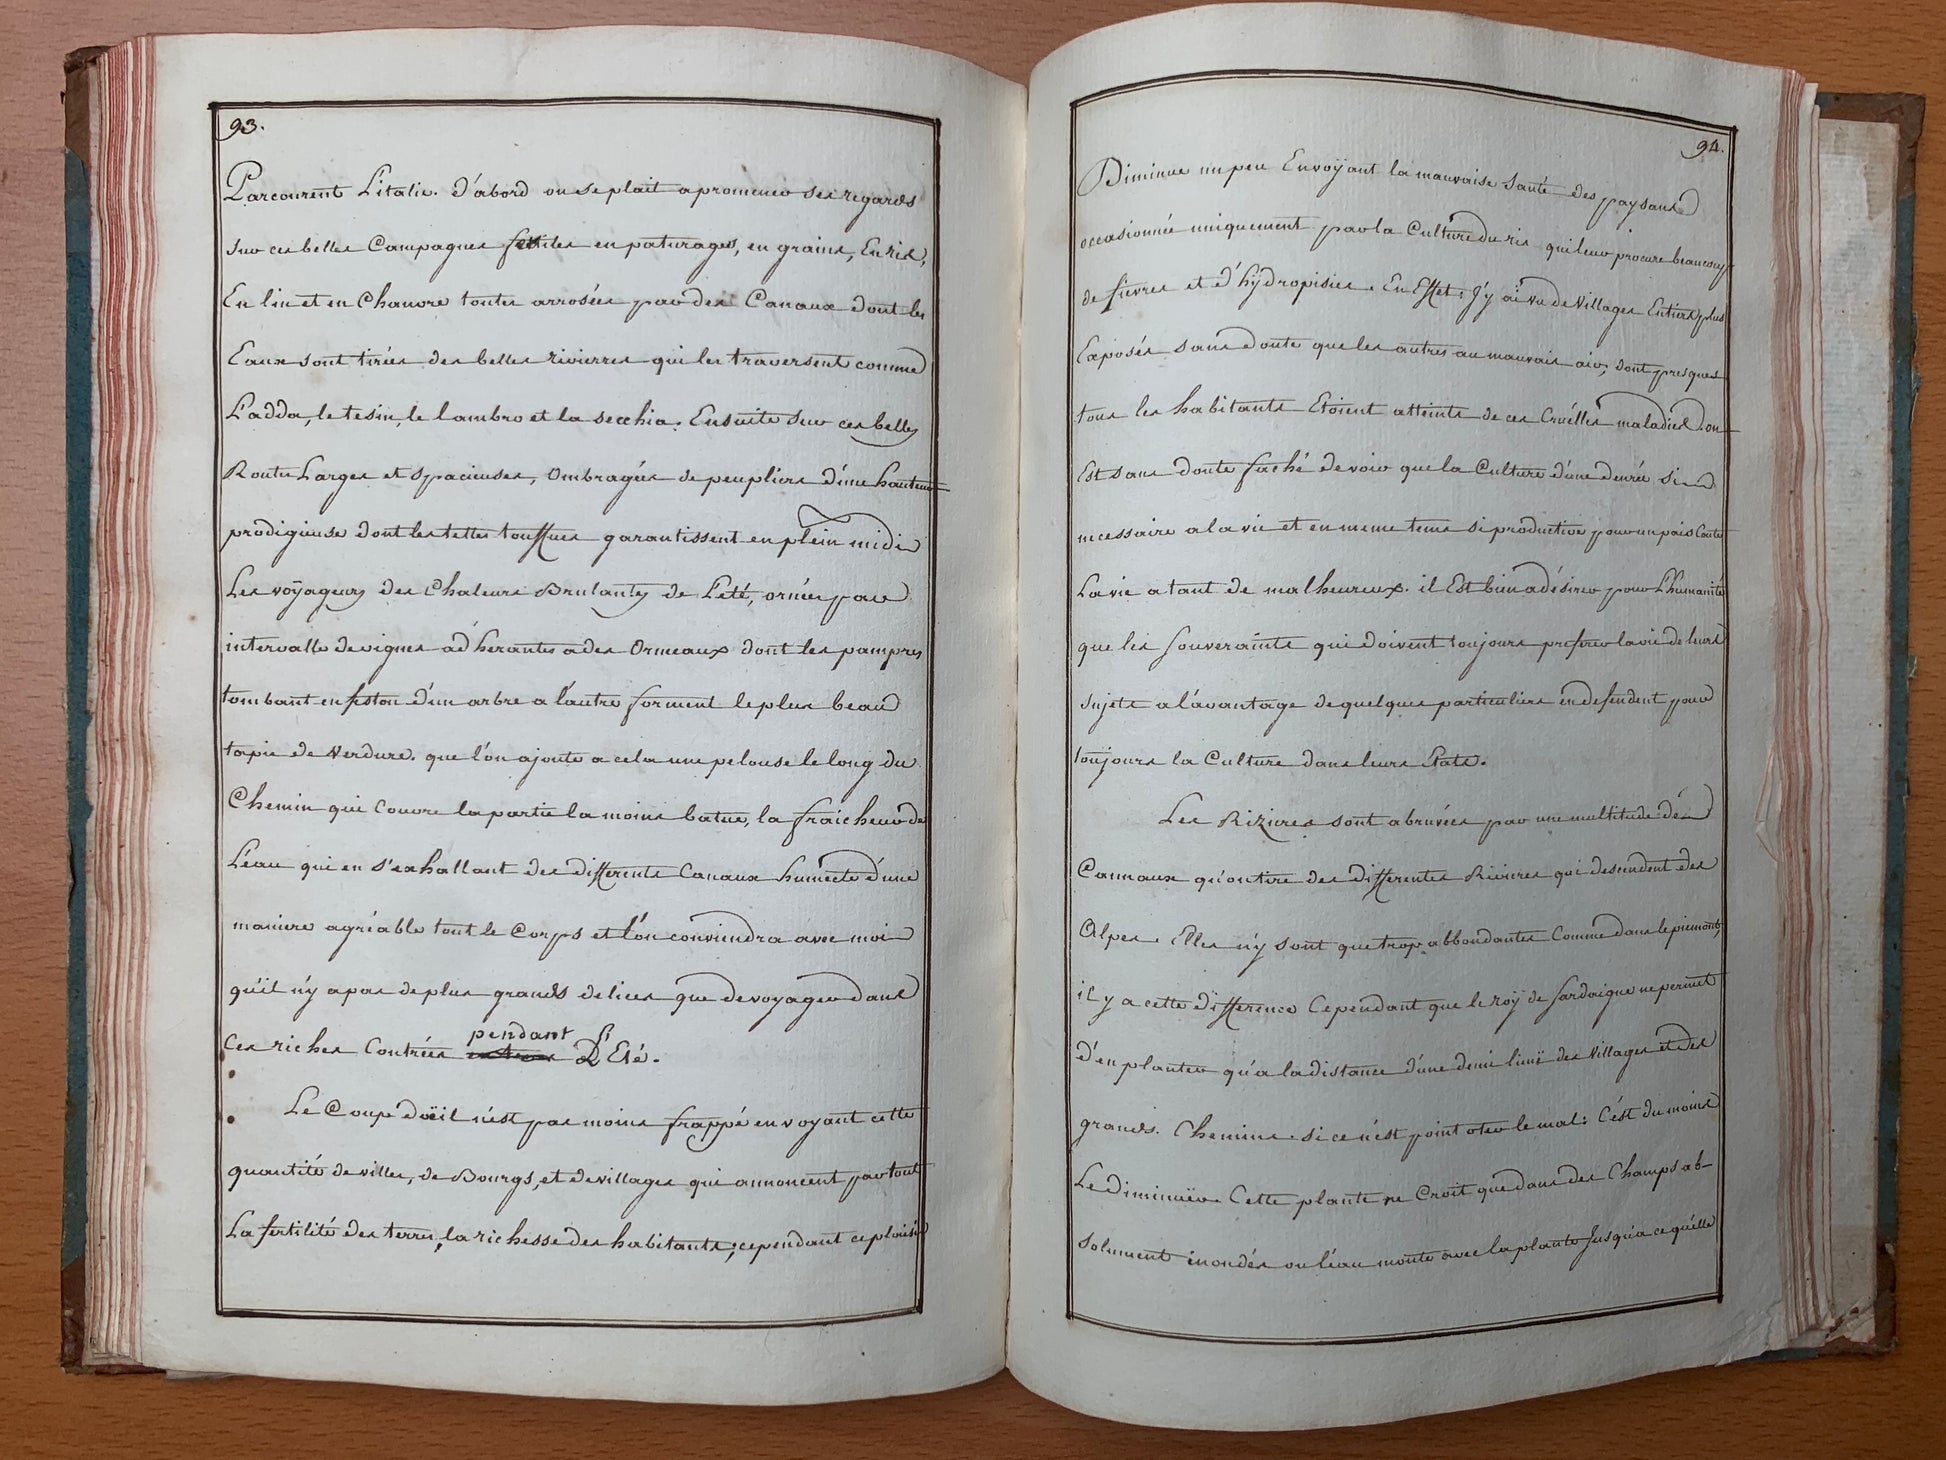 93.
Parcourent L'italie. d'abord on se plait a promener ses regards
sur ces belles Campagnes fertiles en paturages, en grains, En ris,
En lin et en Chanvre toutes arrosées par des Canaux dont les
Eaux sont tirées des belles rivierres qui les traversent comme
L'adda, le tesin, le lambro et la secchia. Ensuite sur ces belles
Routes Larges et spacieuses, Ombragées de peupliers d'une hauteur
prodigieuse dont les tettes touffues garantissent en plein midi
Les voÿageurs des Chaleurs Brulantes de L'eté, ornées par
intervalle de vignes ad'herantes a des Ormeaux dont les pampres
tombant en feston d'un arbre a l'autre forment le plus beau
tapis de verdure. que l'on ajoute a cela une pelouse le long du
Chemin qui Couvre la partie la moins batue, la fraicheur de
L'eau qui en s'exhallant des differents Canaux humecte d'une
maniere agréable tout le Corps et l'on conviendra avec moi
qu'il n'y a pas de plus grands delices que de voyager dans
Ces riches Contrées pendant L'Eté.
Le Coup d'oëil n'est pas moins frappé en voyant cette
quantité de villes, de Bourgs, et de villages qui annoncent par tout
La fertilité des terres, la richesse des habitants; cependant ce plaisir
94.
Diminue un peu En voÿant la mauvaise Santé des paysans
occasionnée uniquement par la Culture du ris qui leur procure beaucoup
de fievres et d'hÿdropisies. En Effet, J'y ai vu de Villages Entiers plus
Exposés sans doute que les autres au mauvais air, dont presques
tous les habitants Etoient atteints de ces Cruélles maladies. on
Est sans doute faché de voir que la Culture d'une denrée si
necessaire a la vie et en meme tems si productive pour un pais Coute
La vie a tant de malheureux. il Est bien a désirer pour L'humanité
que les souveraints qui doivent toujours preferer la vie de leurs
sujets a l'avantage de quelques particuliers en defendent pour
toujours la Culture dans leurs Etats.
Les Rizieres sont abruvées par une multitude de
Cannaux qu'on tire des differentes Rivieres qui descendent des
Alpes. Elles n'y sont que trop abbondantes Comme dans le piemont,
il y a cette difference Cependant que le roÿ de sardaigne ne permet
d'en planter qu'a la distance d'une demi lieuë des Villages et des
grands. Chemins. si ce n'est point oter le mal: C'est du moins
Le diminuër. Cette plante ne Croit que dans des Champs ab-
solument inondés ou l'eau monte avec la plante Jusqu'a ce qu'elle